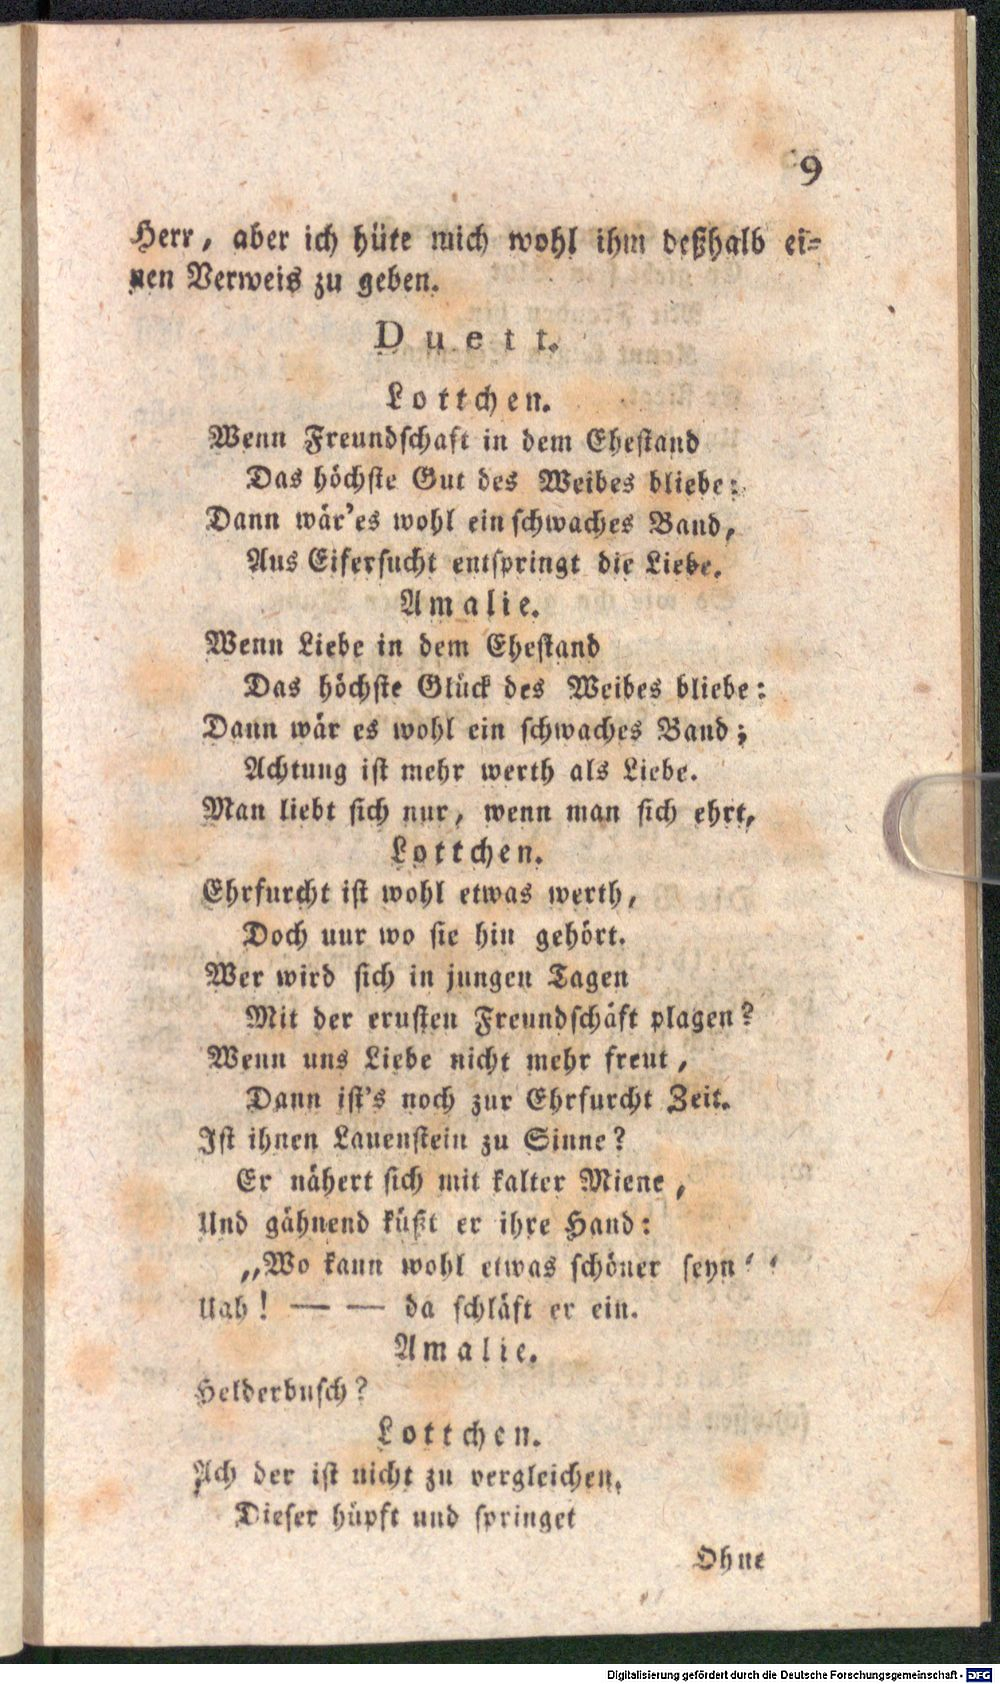 9
Herr, aber ich hüte mich wohl ihm deßhalb ei=
nen Verweis zu geben.
Duett.
Lottchen.
Wenn Freundschaft in dem Ehestand
Das höchste Gut des Weibes bliebe:
Dann wär'es wohl ein schwaches Band,
Aus Eifersucht entspringt die Liebe.
Amalie.
Wenn Liebe in dem Ehestand
Das höchste Glück des Weibes bliebe:
Dann wär es wohl ein schwaches Band;
Achtung ist mehr werth als Liebe.
Man liebt sich nur, wenn man sich ehrt,
Lottchen.
Ehrfurcht ist wohl etwas werth,
Doch nur wo sie hin gehört.
Wer wird sich in jungen Tagen
Mit der ernsten Freundschäft plagen?
Wenn uns Liebe nicht mehr freut,
Dann ist's noch zur Ehrfurcht Zeit.
Ist ihnen Lauenstein zu Sinne?
Er nähert sich mit kalter Miene,
Und gähnend küßt er ihre Hand:
„Wo kann wohl etwas schöner seyn“
Uah! — — da schläft er ein.
Amalie.
Helderbusch?
Lottchen.
Ach der ist nicht zu vergleichen,
Dieser hüpft und springet
Ohne
Digitalisierung gefördert durch die Deutsche Forschungsgemeinschaft - DFG